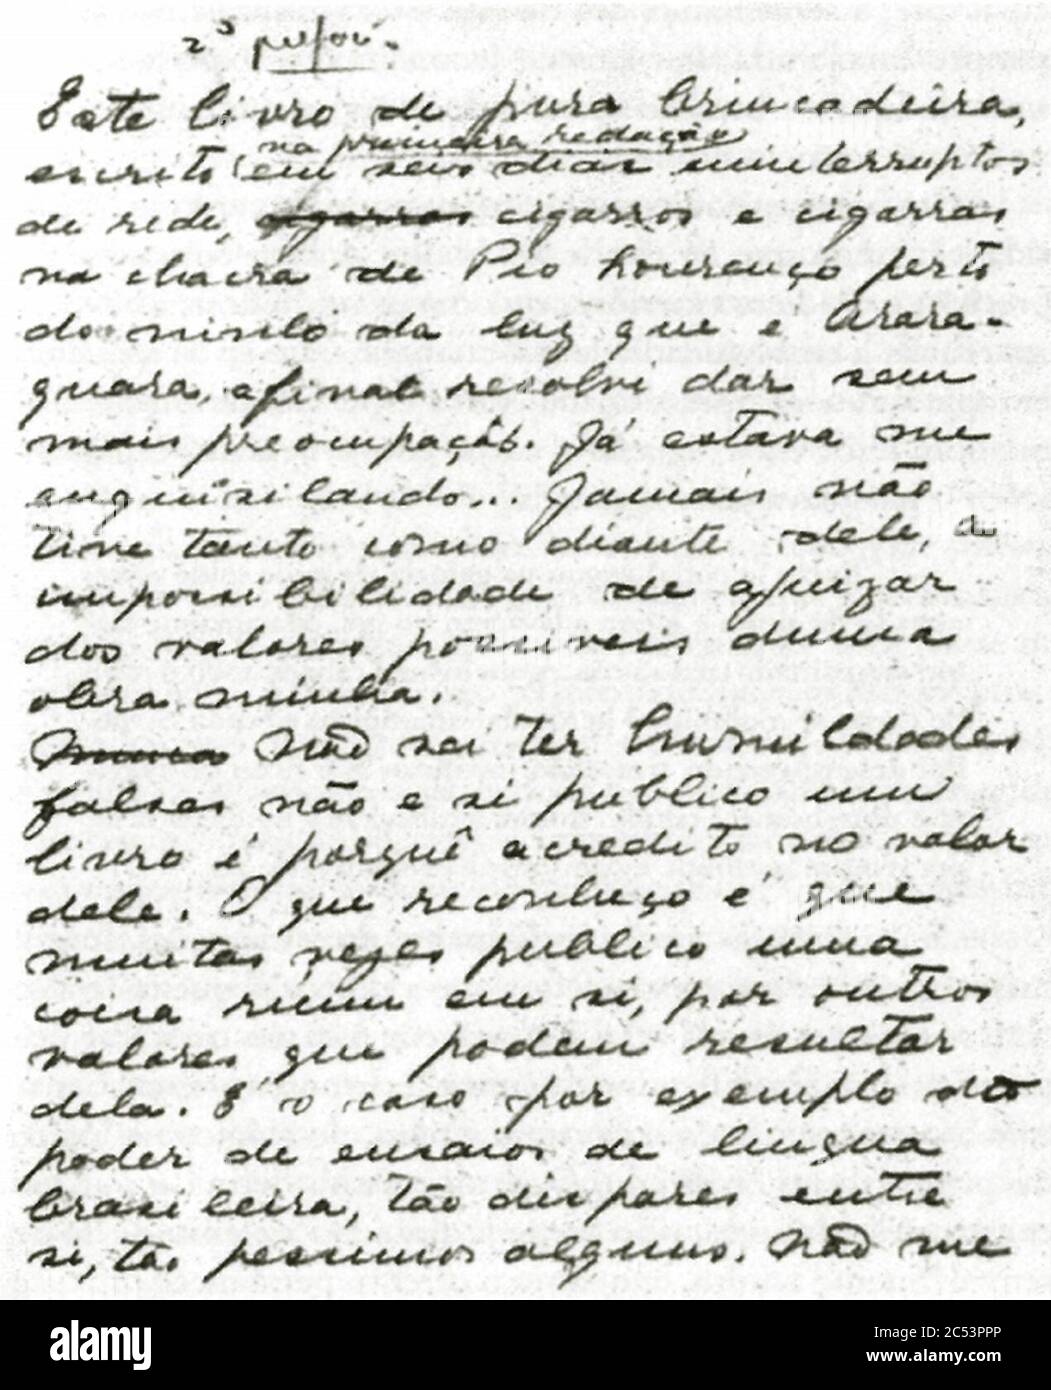 2º prefácio
Este livro de pura brincadeira,
na primeira redação
escrito em seis dias ininterruptos
de rede, cigarros cigarros e cigarras
na chacra de Pio Lourenço perto
do ninho da luz que e Arara-
quara, afinal resolvi dar sem
mais preocupação. Já estava me
enquisilando... Jamais não
tive tanto como diante dele, a
impossibilidade de ajuizar
dos valores possiveis duma
obra minha.
Nunca Não sei ter humildades
falsas não e si publico um
livro é porquê acredito no valor
dele. O que reconheço é que
muitas vezes publico uma
coisa ruim em si, por outros
valores que podem resultar
dela. É o caso por exemplo do
poder de ensaios de lingua
brasileira, tão dispares entre
si, tão pessimos alguns. Não me
alamy
Image ID: 2C53PPP
www.alamy.com